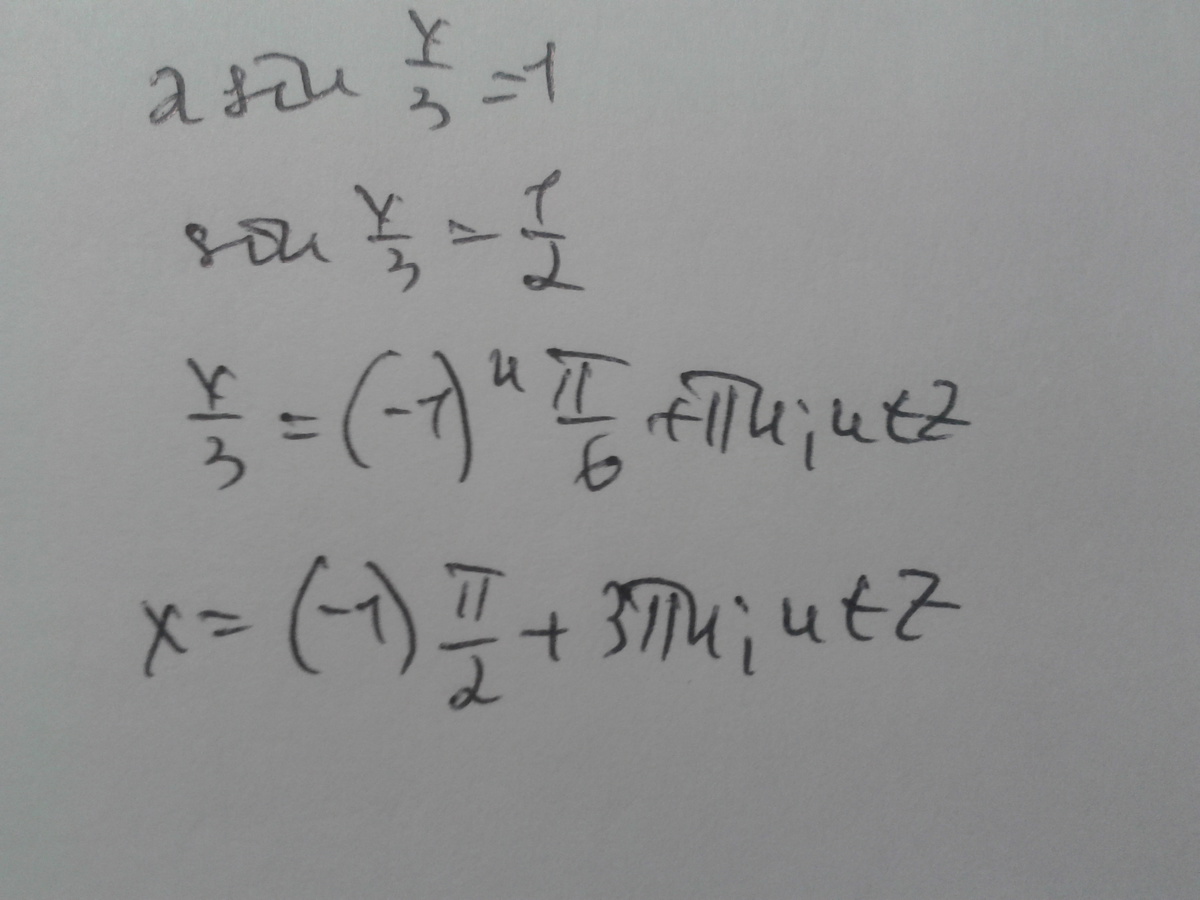 2 sin x/3 = 1
sin x/3 = 1/2
x/3 = (-1)ⁿ π/6 + πn; n ∈ Z
x = (-1) π/2 + 3πn; n ∈ Z